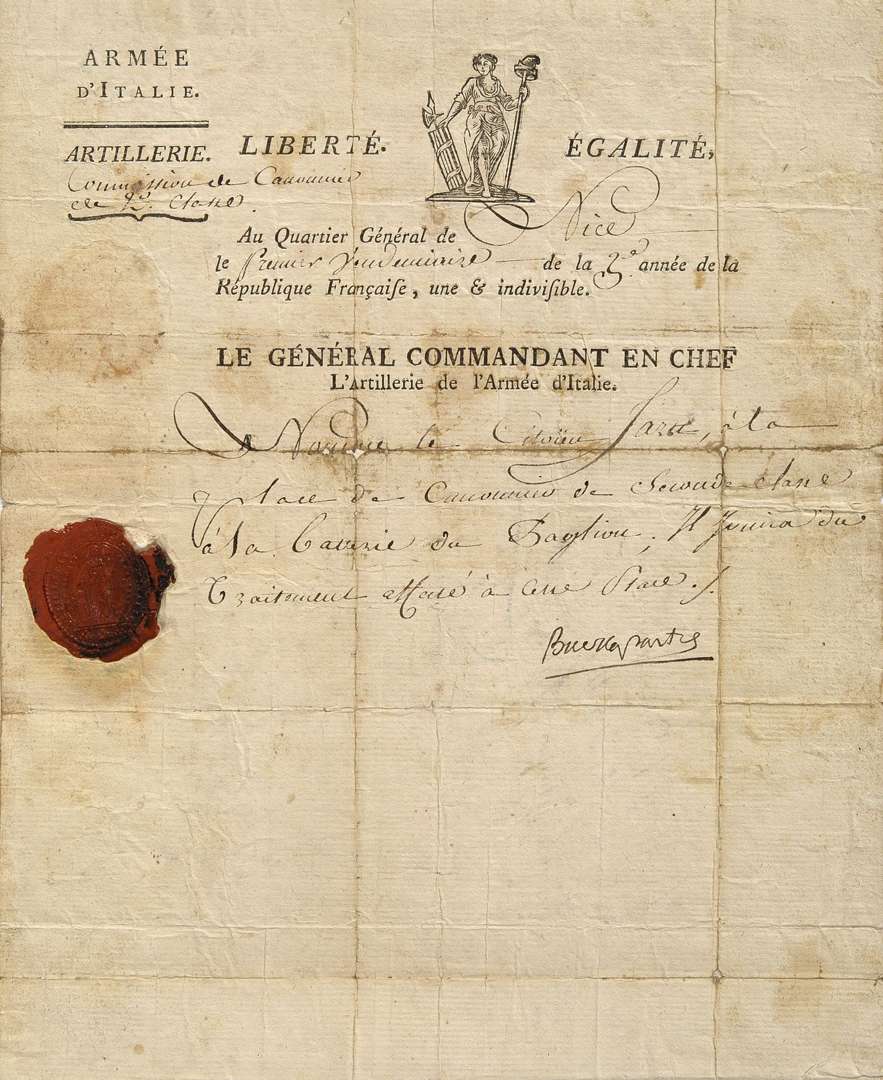 ARMÉE
D'ITALIE.
ARTILLERIE.
LIBERTÉ. ÉGALITÉ,
Commission de Canonnier
de 2e. Classe.
Au Quartier Général de Nice
le premier Vendemiaire de la 3e. année de la
République Françaiſe, une & indiviſible.
LE GÉNÉRAL COMMANDANT EN CHEF
L'Artillerie de l'Armée d'Italie.
Nomme le Citoÿen, à la
place de Canonnier de Seconde Classe
à la Batterie du; Il Jouira du
Traitement affecté à Cette Place./.
Buonaparte